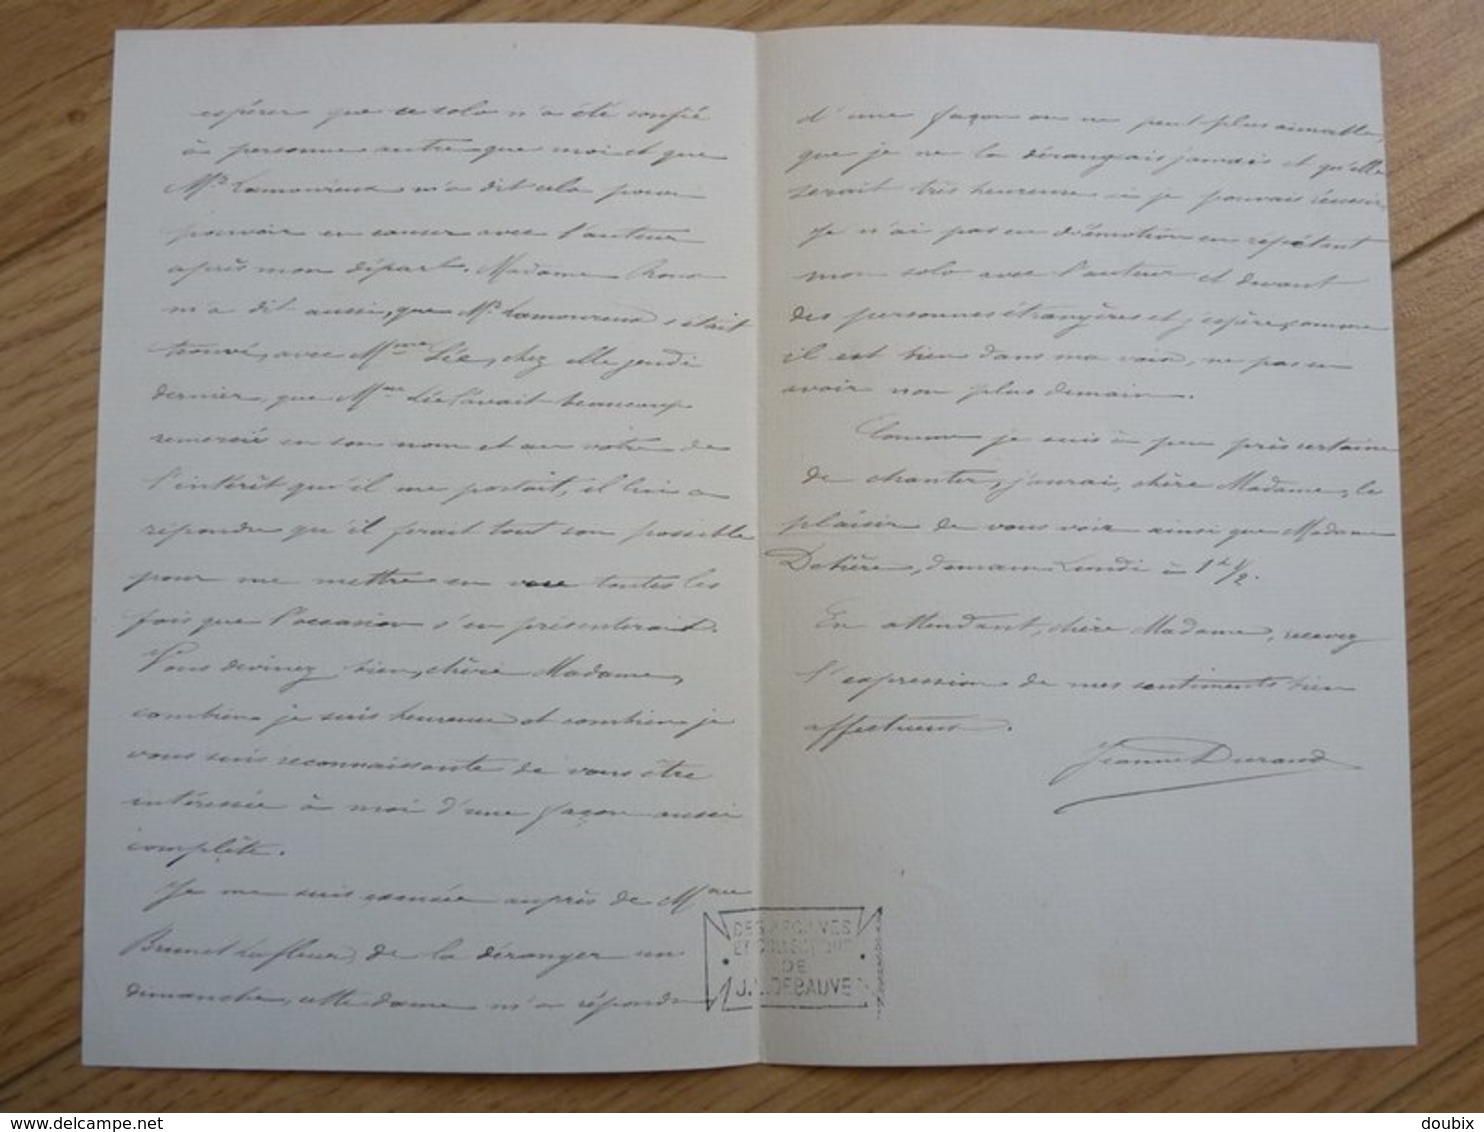 espérer que ce solo n'a été confié
à personne autre que moi et que
Mr Lamoureux m'a dit cela pour
pouvoir en causer avec l'auteur
après mon départ. Madame
m'a dit aussi, que Mr Lamoureux s'était
trouvé, avec Mme Lée, chez elle jeudi
dernier, que Mme Lée l'avait beaucoup
remercié en son nom et au vôtre de
l'intérêt qu'il me portait, il lui a
répondu qu'il ferait tout son possible
pour me mettre en vue toutes les
fois que l'occasion s'en présenterait.
Vous devinez bien, chère Madame,
combien je suis heureuse et combien je
vous suis reconnaissante de vous être
intéressée à moi d'une façon aussi
complète.
Je me suis excusée auprès de Mme
Brunet Lafleur, de la déranger un
dimanche, cette dame m'a répondu
d'une façon on ne peut plus aimable,
que je ne la dérangeais jamais et qu'elle
serait très heureuse si je pouvais réussir.
Je n'ai pas eu d'émotion en répétant
mon solo avec l'auteur et devant
des personnes étrangères et j'espère, comme
il est bien dans ma voix, ne pas en
avoir non plus demain.
Comme je suis à peu près certaine
de chanter, j'aurai, chère Madame, le
plaisir de vous voir ainsi que Madame
demain Lundi à 1h 1/2.
En attendant, chère Madame, recevez
l'expression de mes sentiments bien
affectueux.
Jeanne Durand
DES ARCHIVES
ET COLLECTIONS
DE
J. DEBAUVE
doubix